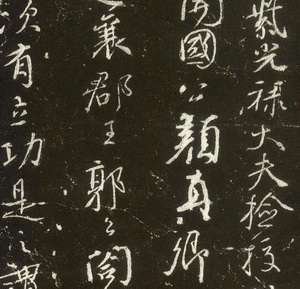 紫光禄大夫檢校
開國公顏真卿
襄郡王郭公閤
次有立功是之謂